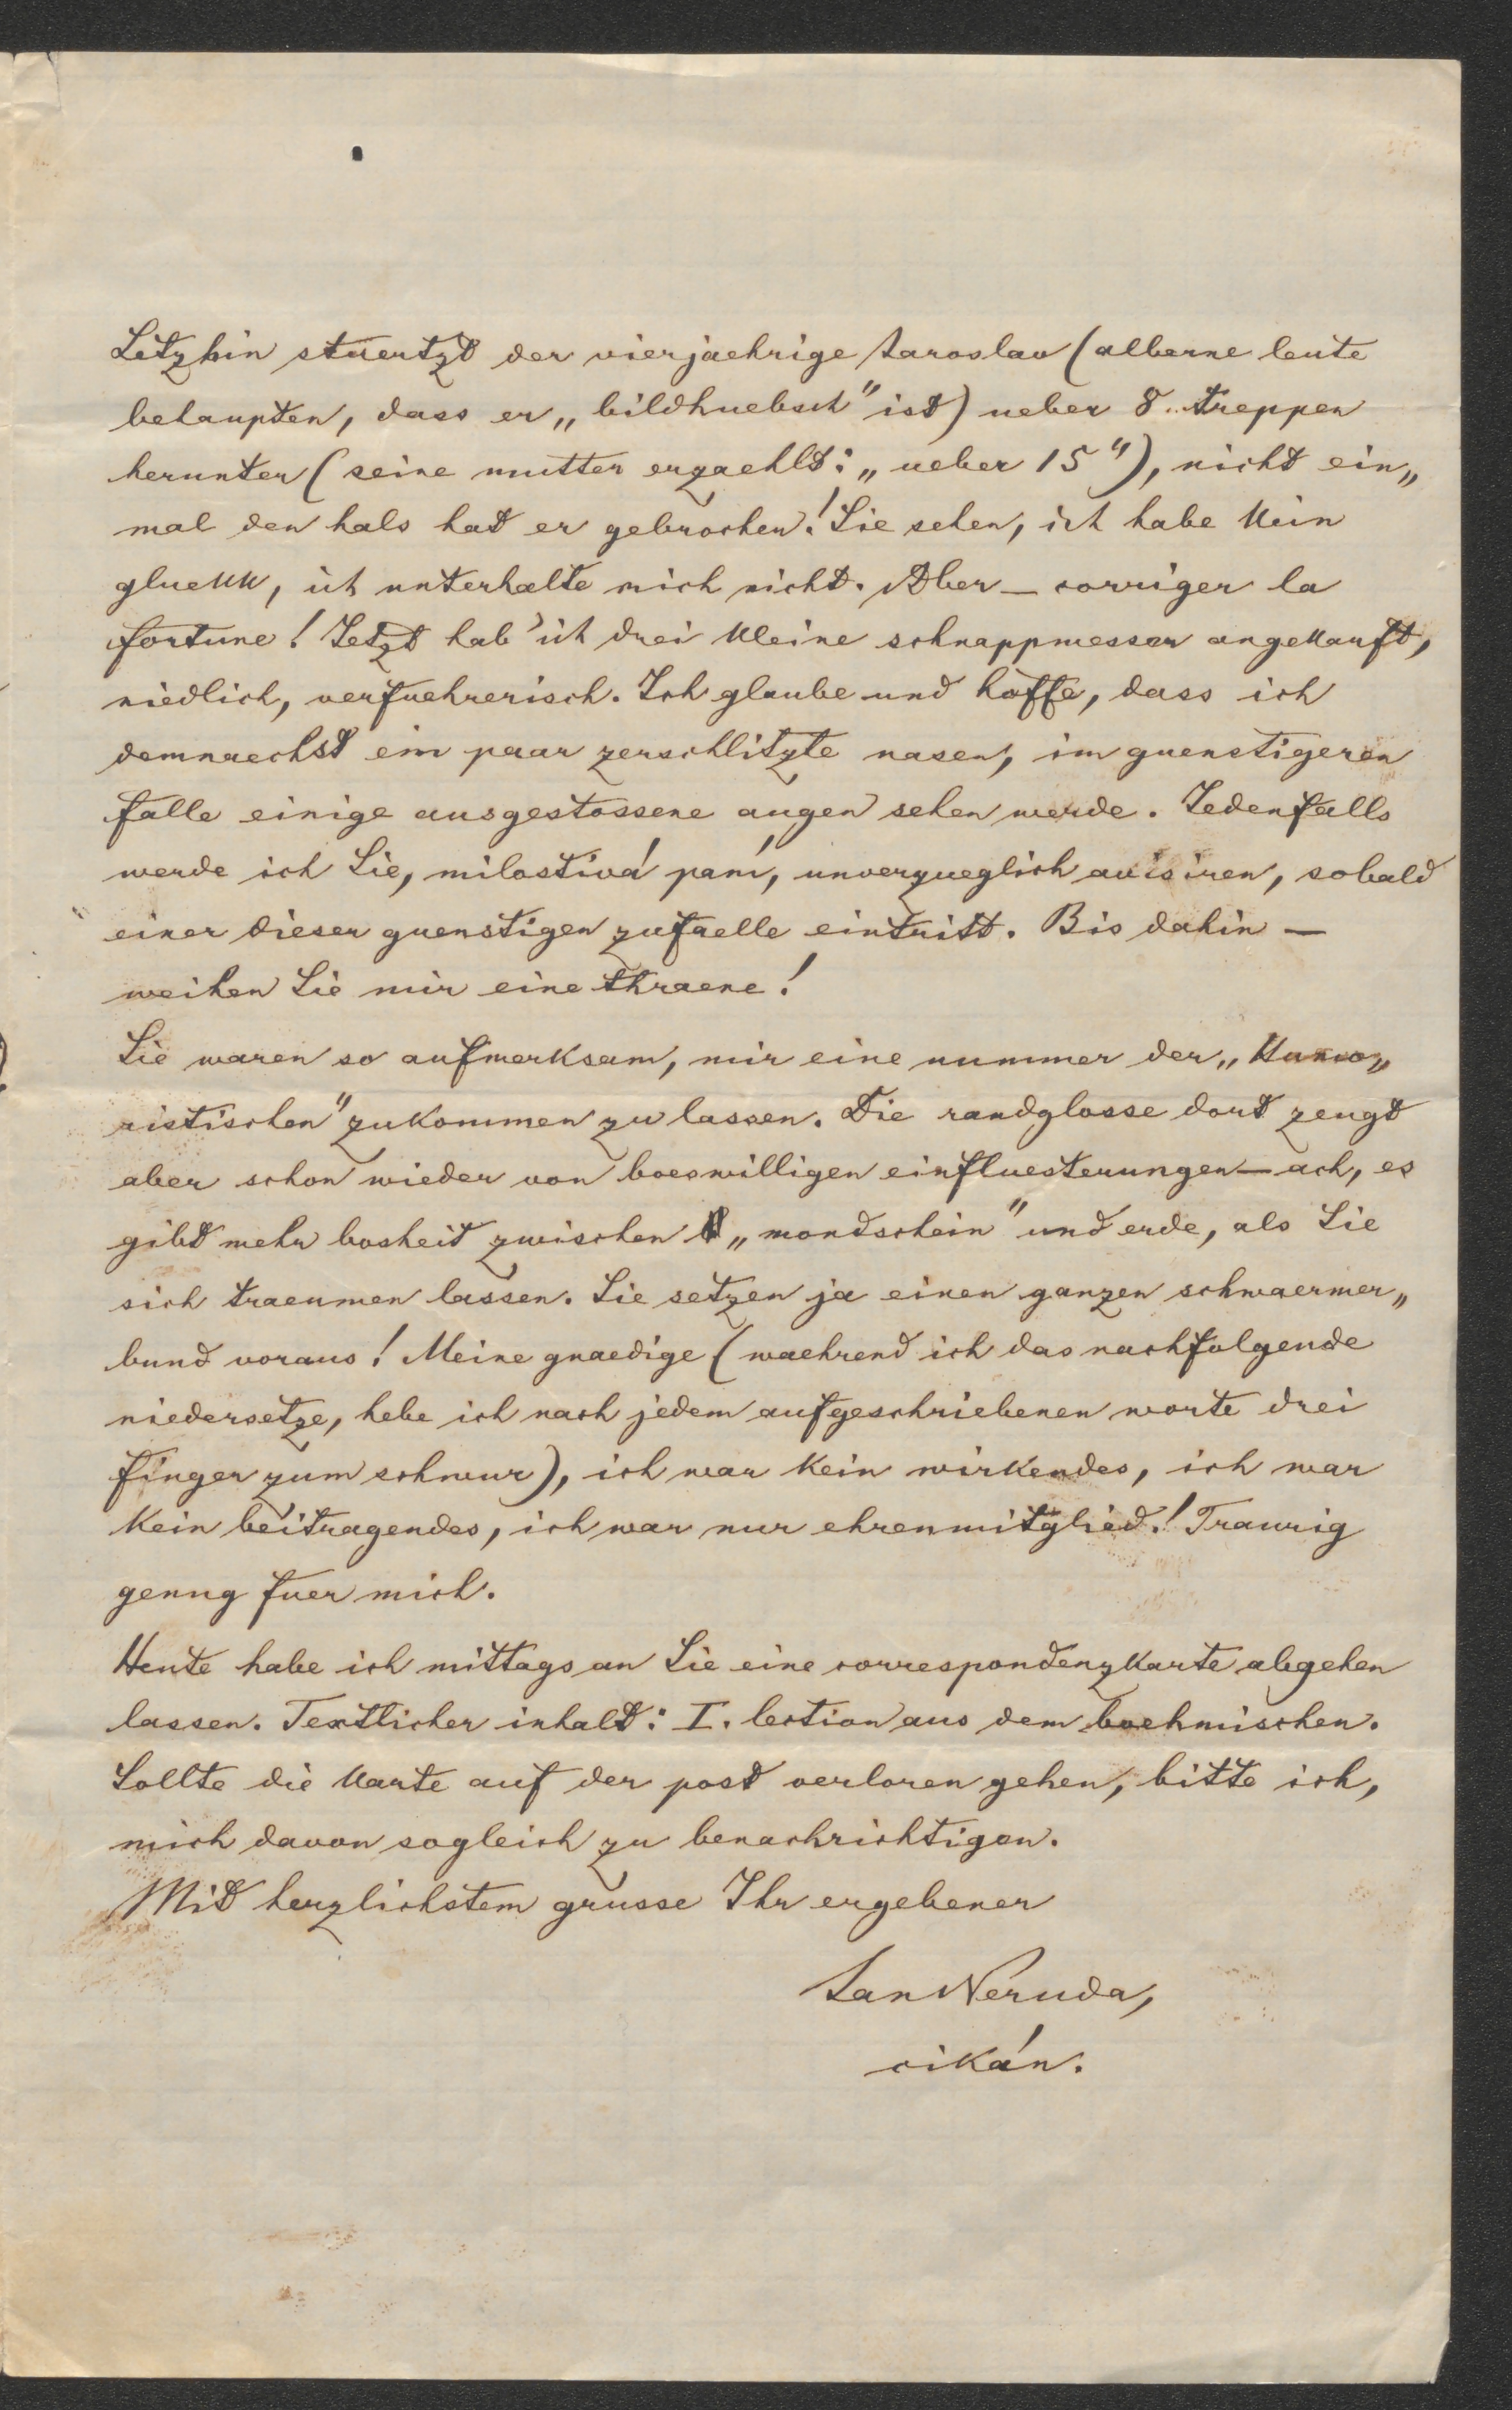 Letzhin stuertzt der vierjaehrige Jaroslav (alberne leute
behaupten, dass er „bildhuebsch" ist) ueber 8 treppen
herunter (seine mutter erzaehlt: „ueber 15"), nicht ein„
mal den hals hat er gebrochen! Sie sehen, ich habe kein
gluekk, ich unterhalte mich nicht. Aber – corriger la
fortune! Jetzt hab' ich drei kleine schnappmesser angekauft,
niedlich, verfuehrerisch. Ich glaube und hoffe, dass ich
demnaechst ein paar zerschlitzte nasen, im guenstigeren
falle einige ausgestossene augen sehen werde. Jedenfalls
werde ich Sie, milostivá paní, unverzueglich avisiren, sobald
einer dieser guenstigen zufaelle eintritt. Bis dahin –
weihen Sie mir eine thraene!
Sie waren so aufmerksam, mir eine nummer der „Humo„
ristischen" zukommen zu lassen. Die randglosse dort zeugt
aber schon wieder von boeswilligen einfluesterungen – ach, es
gibt mehr bosheit zwischen „mondschein" und erde, als Sie
sich traeumen lassen. Sie setzen ja einen ganzen schwaermer„
bund voraus! Meine gnaedige (waehrend ich das nachfolgende
niedersetze, hebe ich nach jedem aufgeschriebenen worte drei
finger zum schwur), ich war kein wirkendes, ich war
kein beitragendes, ich war nur ehrenmitglied! Traurig
genug fuer mich.
Heute habe ich mittags an Sie eine correspondenzkarte abgehen
lassen. Textlicher inhalt: I. lection aus dem boehmischen.
Sollte die karte auf der post verloren gehen, bitte ich,
mich davon sogleich zu benachrichtigen.
Mit herzlichstem grusse Ihr ergebener
Jan Neruda,
cikán.